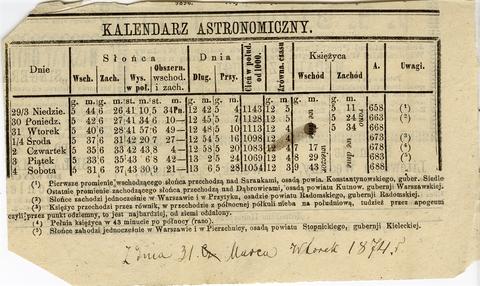 KALENDARZ ASTRONOMICZNY.
Dnie Słońca Dnia Cień w połud. od 1000. zrówna. czasu Księżyca A. Uwagi.
Wsch. Zach. Wys. w poł. Obszern. wschod. i zach. Dług. Przy. Wschód Zachód
g. m. g. m. st. m. st. m. g. m. g. m. g. m. g. m.
29/3 Niedzie. 5 44 6 26 41 10 5 34 Pn. 12 42 5 4 1143 12 5 5 11 658 (¹)
30 Poniedz. 5 42 6 27 41 34 6 10— 12 45 5 7 1128 12 5 5 24 663 (²)
31 Wtorek 5 40 6 28 41 57 6 49— 12 48 5 10 1113 12 5 5 34 668
1/4 Środa 5 37 6 31 42 20 7 27— 12 54 5 16 1098 12 673 (³)
2 Czwartek 5 35 6 33 42 43 8 4— 12 58 5 20 1083 12 7 17 678 (⁴)
3 Piątek 5 33 6 35 43 6 8 42— 13 2 5 24 1069 12 4 8 29 683
4 Sobota 5 31 6 37 43 30 9 21 13 6 5 28 1054 12 3 9 43 688 (⁵)
(¹) Pierwsze promienie wschodzącego słońca przechodzą nad Sarnakami, osadą powia. Konstantynowskiego, guber. Siedle
Ostatnie promienie zachodzącego słońca przechodzą nad Dąbrowicami, osadą powiatu Kutnow. gubernji Warszawskiej.
(²) Słońce zachodzi jednocześnie w Warszawie i w Przytyku, osadzie powiatu Radomskiego, gubernji Radomskiej.
(³) Księżyc przechodzi przez równik, w przechodzie z północnej półkuli nieba na południową, tudzież przez apogeum
czyli przez punkt odzienny, to jest najbardziej, od ziemi oddalony.
(⁴) Pełnia księżyca w 43 minucie po północy (rano).
(⁵) Słońce zachodi jednocześnie w Warszawie i w Pierzchnicy, osadą powiatu Stopnickiego, gubernji Kieleckiej.
Z dnia 31. Marca Wtorek 1874 r.